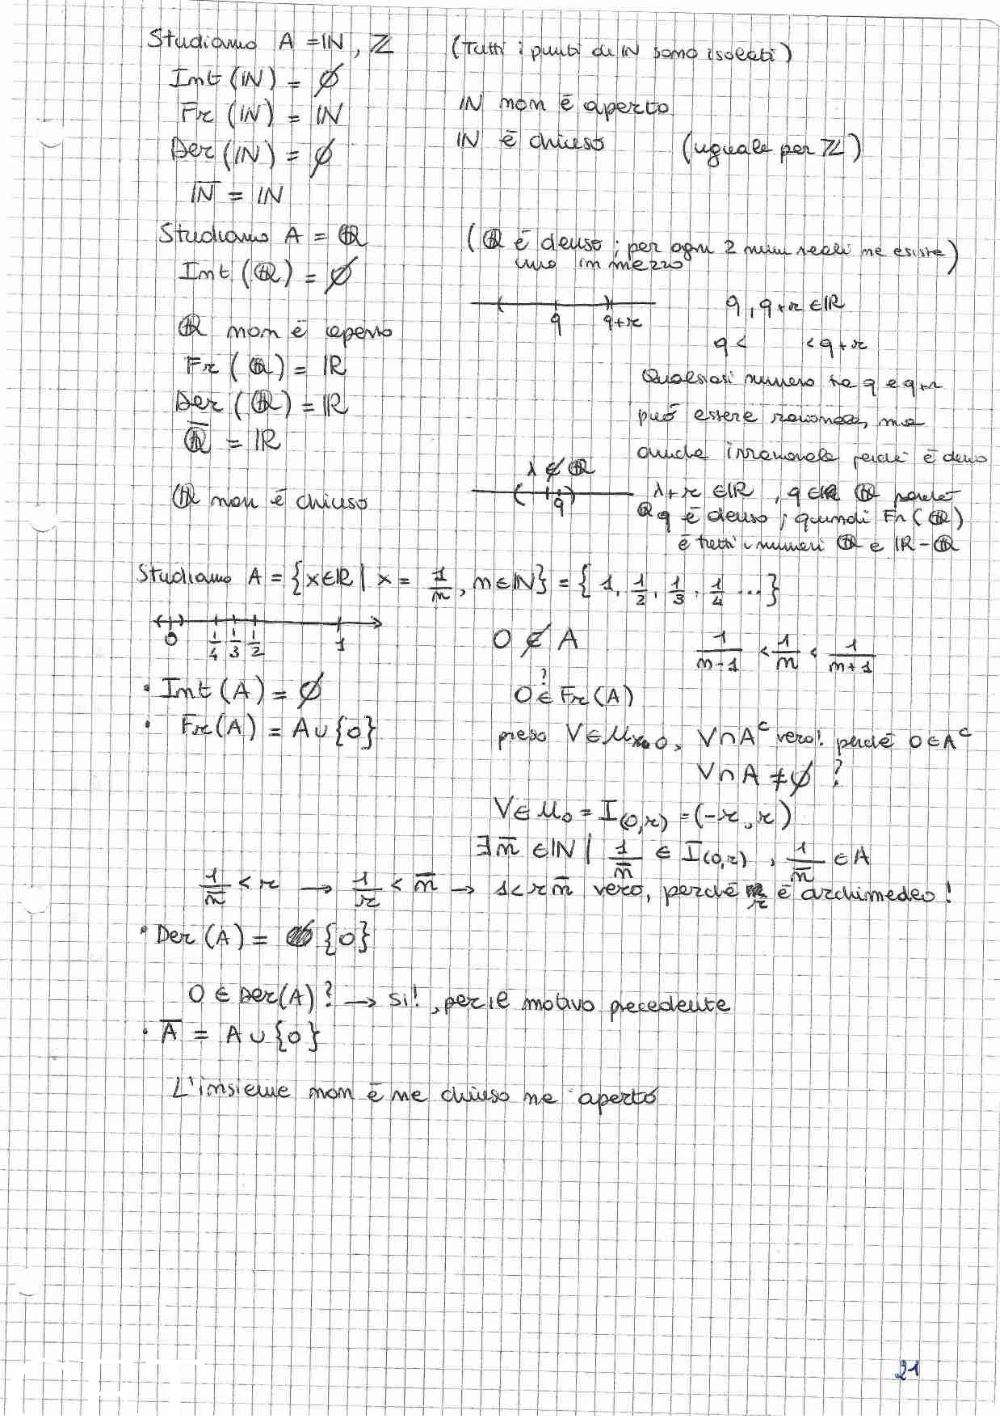 Studiamo A = ℕ, ℤ (Tutti i punti di ℕ sono isolati)
Int(ℕ) = ∅
Fr(ℕ) = ℕ ℕ non è aperto
Der(ℕ) = ∅ ℕ è chiuso (uguale per ℤ)
ℕ̅ = ℕ
Studiamo A = ℚ (ℚ è denso; per ogni 2 num reali ne esiste
uno in mezzo)
Int(ℚ) = ∅
q q+r q, q+r ∈ ℝ
ℚ non è aperto q < < q+r
Fr(ℚ) = ℝ Qualsiasi numero tra q e q+r
Der(ℚ) = ℝ può essere razionale, ma
ℚ̅ = ℝ anche irrazionale perché è denso
λ ∉ ℚ
ℚ non è chiuso q λ+r ∈ ℝ, q ∈ ℚ perché
q è denso; quindi Fr(ℚ)
è tutti i numeri ℚ e ℝ-ℚ
Studiamo A = {x∈ℝ | x = 1/n, n∈ℕ} = {1, 1/2, 1/3, 1/4 ...}
0 1/4 1/3 1/2 1 0 ∉ A 1/(n-1) < 1/n < 1/(n+1)
• Int(A) = ∅ 0 ∈? Fr(A)
• Fr(A) = A∪{0} preso V∈𝓤 0, V∩Aᶜ vero! perché 0∈Aᶜ
V∩A ≠ ∅ ?
V∈𝓤₀ = I(0,r) = (-r, r)
∃n̅ ∈ℕ | 1/n̅ ∈ I(0,r), 1/n̅ ∈ A
1/n̅ < r → 1/r < n̅ → 1 < r n̅ vero, perché r è archimedeo!
• Der(A) = {0}
0 ∈ Der(A)? → si!, per il motivo precedente
• A̅ = A∪{0}
L'insieme non è ne chiuso ne aperto
21